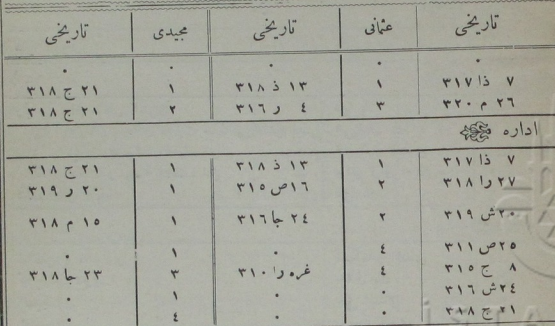 تاریخی عثمانی تاریخی مجیدی تاریخی
. . . . .
٧ ذا ٣١٧ ١ ١٣ ذ ٣١٨ ١ ٢١ ج ٣١٨
٢٦ م ٣٢٠ ٣ ٤ ر ٣١٦ ٢ ٢١ ج ٣١٨
اداره
٧ ذا ٣١٧ ١ ١٣ ذ ٣١٨ ١ ٢١ ج ٣١٨
٢٧ را ٣١٨ ٢ ١٦ ص ٣١٥ ١ ٢٠ ر ٣١٩
٢٠ ش ٣١٩ ٢ ٢٤ جا ٣١٦ ١ ١٥ م ٣١٨
٢٥ ص ٣١١ ٤ . ١ .
٨ ج ٣١٥ ٤ غره را ٣١٠ ٣ ٢٣ جا ٣١٨
٢٤ ش ٣١٦ . . ١ .
٢١ ج ٣١٨ . . ٤ .